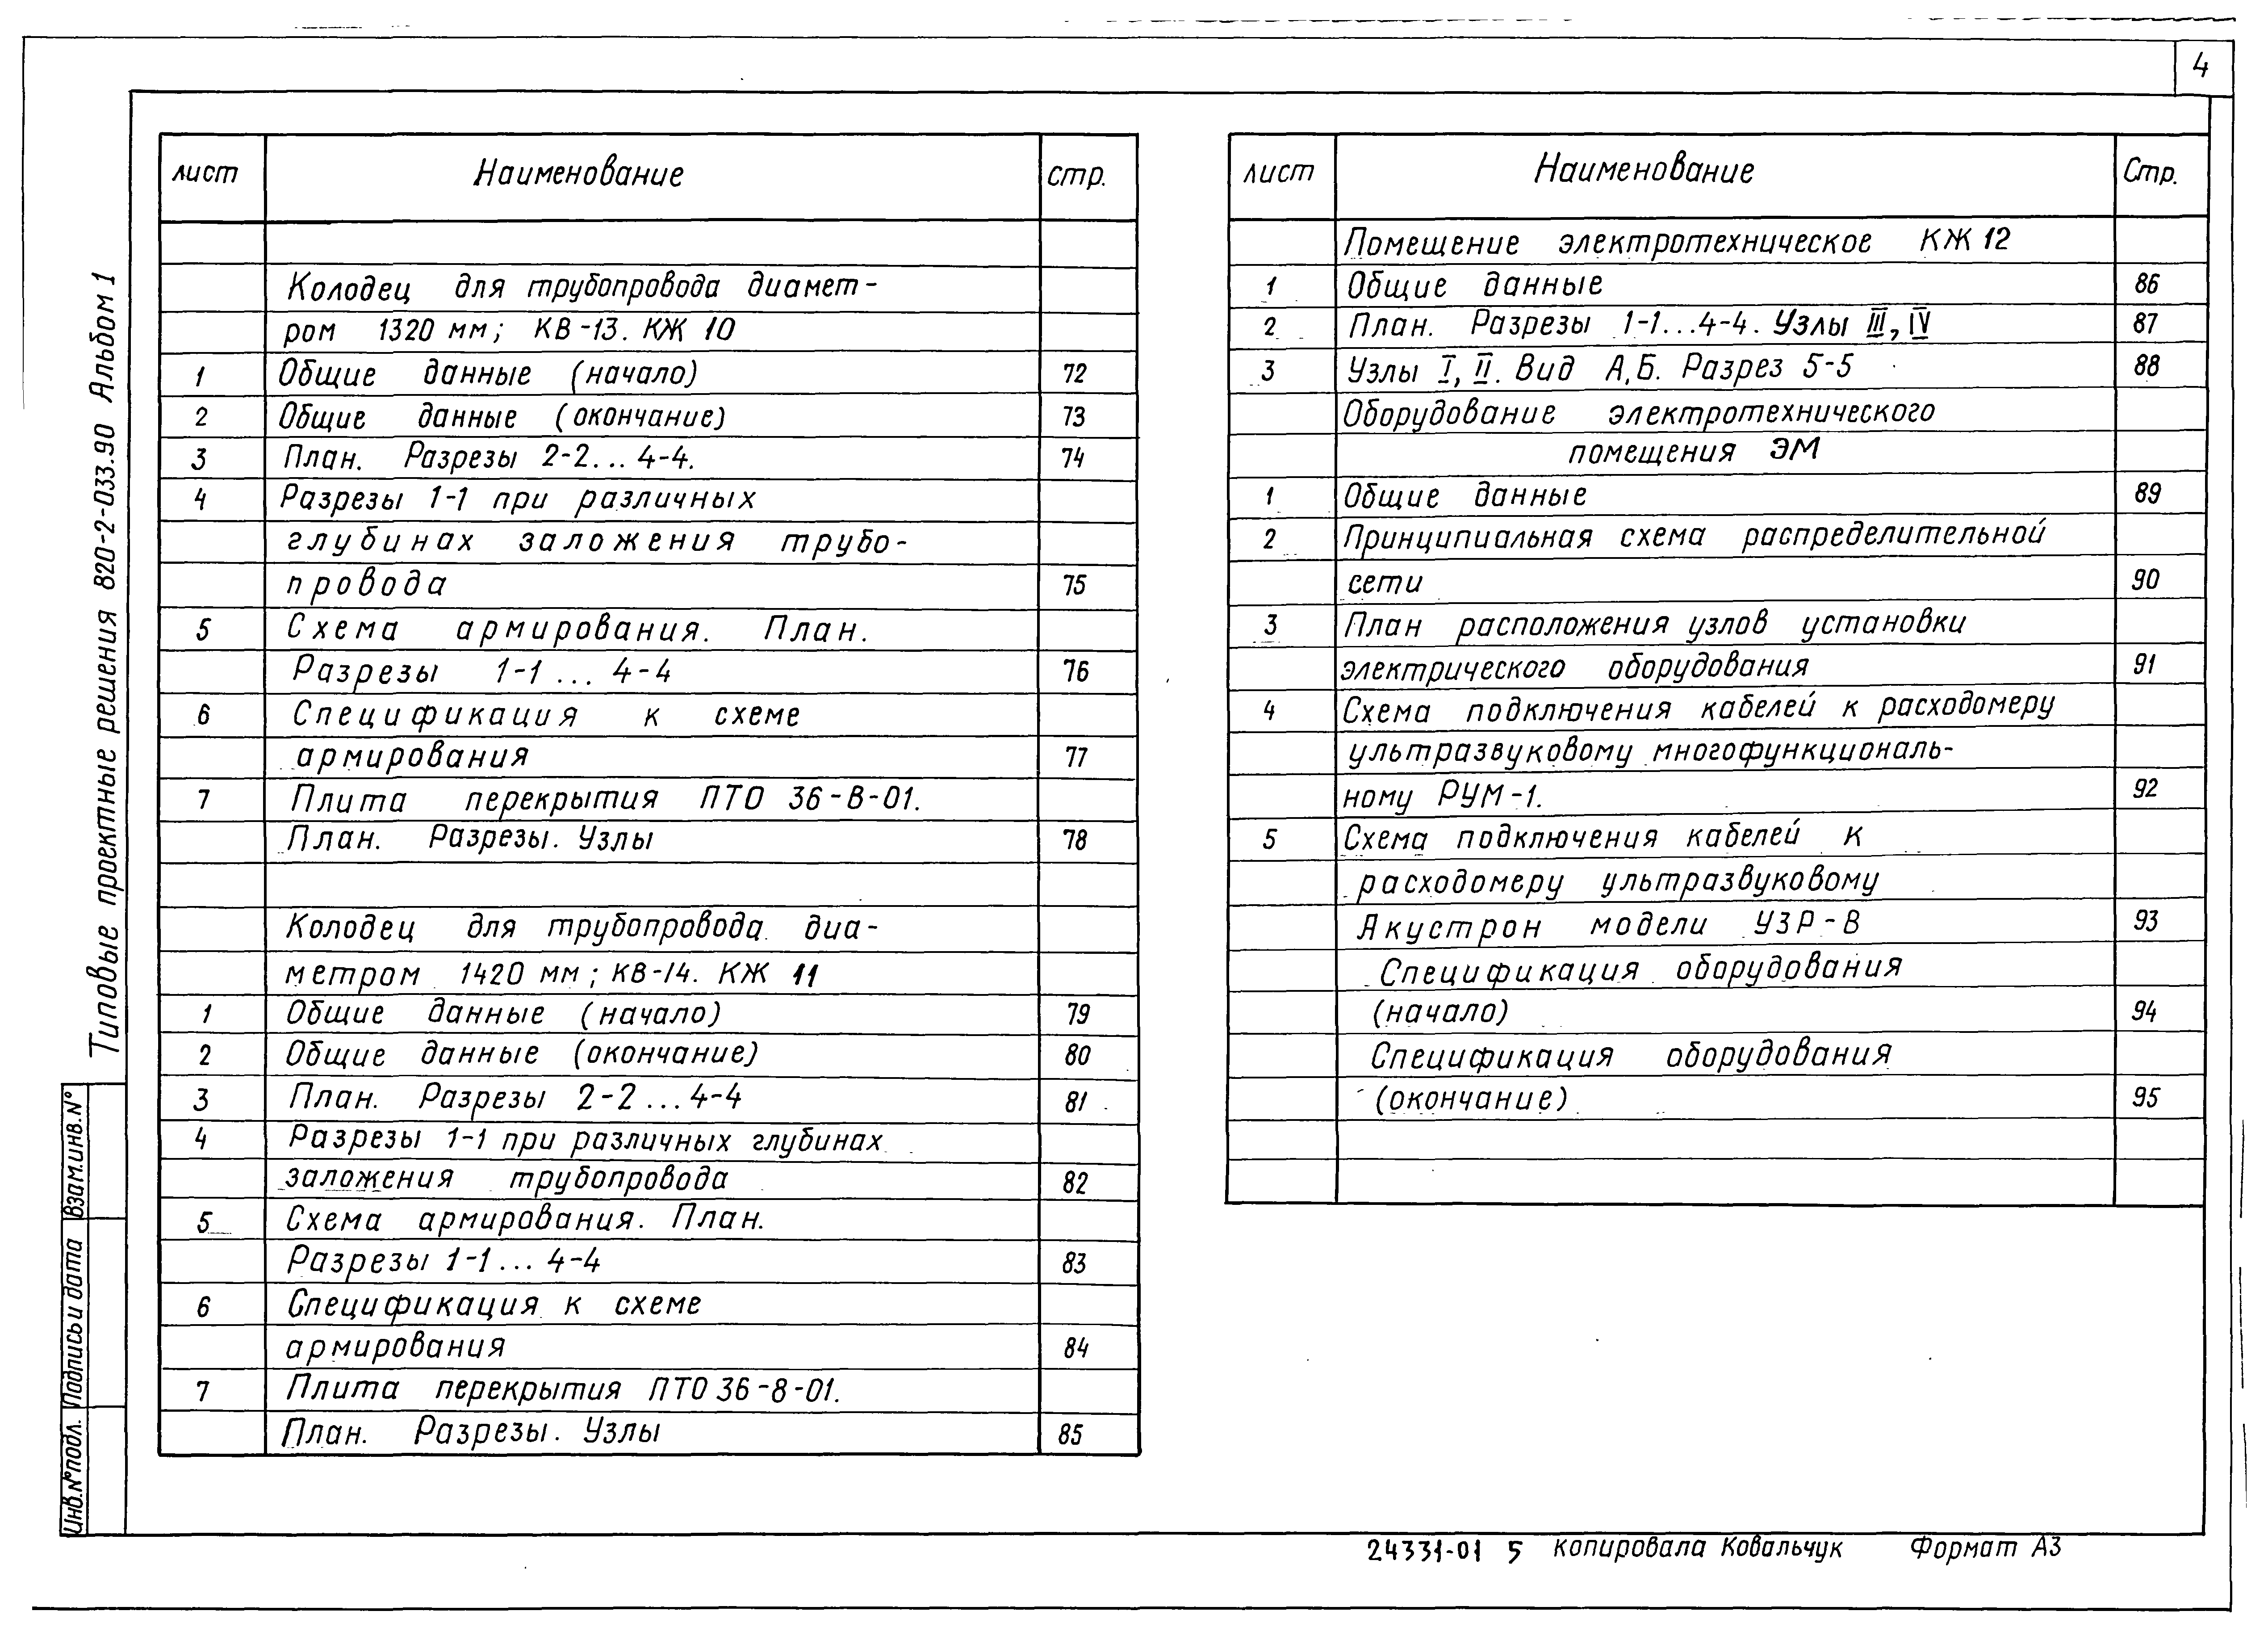 4
Типовые проектные решения 820-2-033.90 Альбом 1
лист Наименование стр.
Колодец для трубопровода диамет-
ром 1320 мм; КВ-13. КЖ 10
1 Общие данные (начало) 72
2 Общие данные (окончание) 73
3 План. Разрезы 2-2...4-4. 74
4 Разрезы 1-1 при различных
глубинах заложения трубо-
провода 75
5 Схема армирования. План.
Разрезы 1-1 ... 4-4 76
6 Спецификация к схеме
армирования 77
7 Плита перекрытия ПТО 36-В-01.
План. Разрезы. Узлы 78
Колодец для трубопровода диа-
метром 1420 мм; КВ-14. КЖ 11
1 Общие данные (начало) 79
2 Общие данные (окончание) 80
3 План. Разрезы 2-2...4-4 81
4 Разрезы 1-1 при различных глубинах
заложения трубопровода 82
5 Схема армирования. План.
Разрезы 1-1... 4-4 83
6 Спецификация к схеме
армирования 84
7 Плита перекрытия ПТО 36-8-01.
План. Разрезы. Узлы 85
лист Наименование Стр.
Помещение электротехническое КЖ 12
1 Общие данные 86
2 План. Разрезы 1-1...4-4. Узлы III, IV 87
3 Узлы I, II. Вид А,Б. Разрез 5-5 88
Оборудование электротехнического
помещения ЭМ
1 Общие данные 89
2 Принципиальная схема распределительной
сети 90
3 План расположения узлов установки
электрического оборудования 91
4 Схема подключения кабелей к расходомеру
ультразвуковому многофункциональ-
ному РУМ-1. 92
5 Схема подключения кабелей к
расходомеру ультразвуковому
Акустрон модели УЗР-В 93
Спецификация оборудования
(начало) 94
Спецификация оборудования
(окончание) 95
Взам.инв.N°
Подпись и дата
Инв.N°подл.
24331-01 5 копировала Ковальчук Формат А3